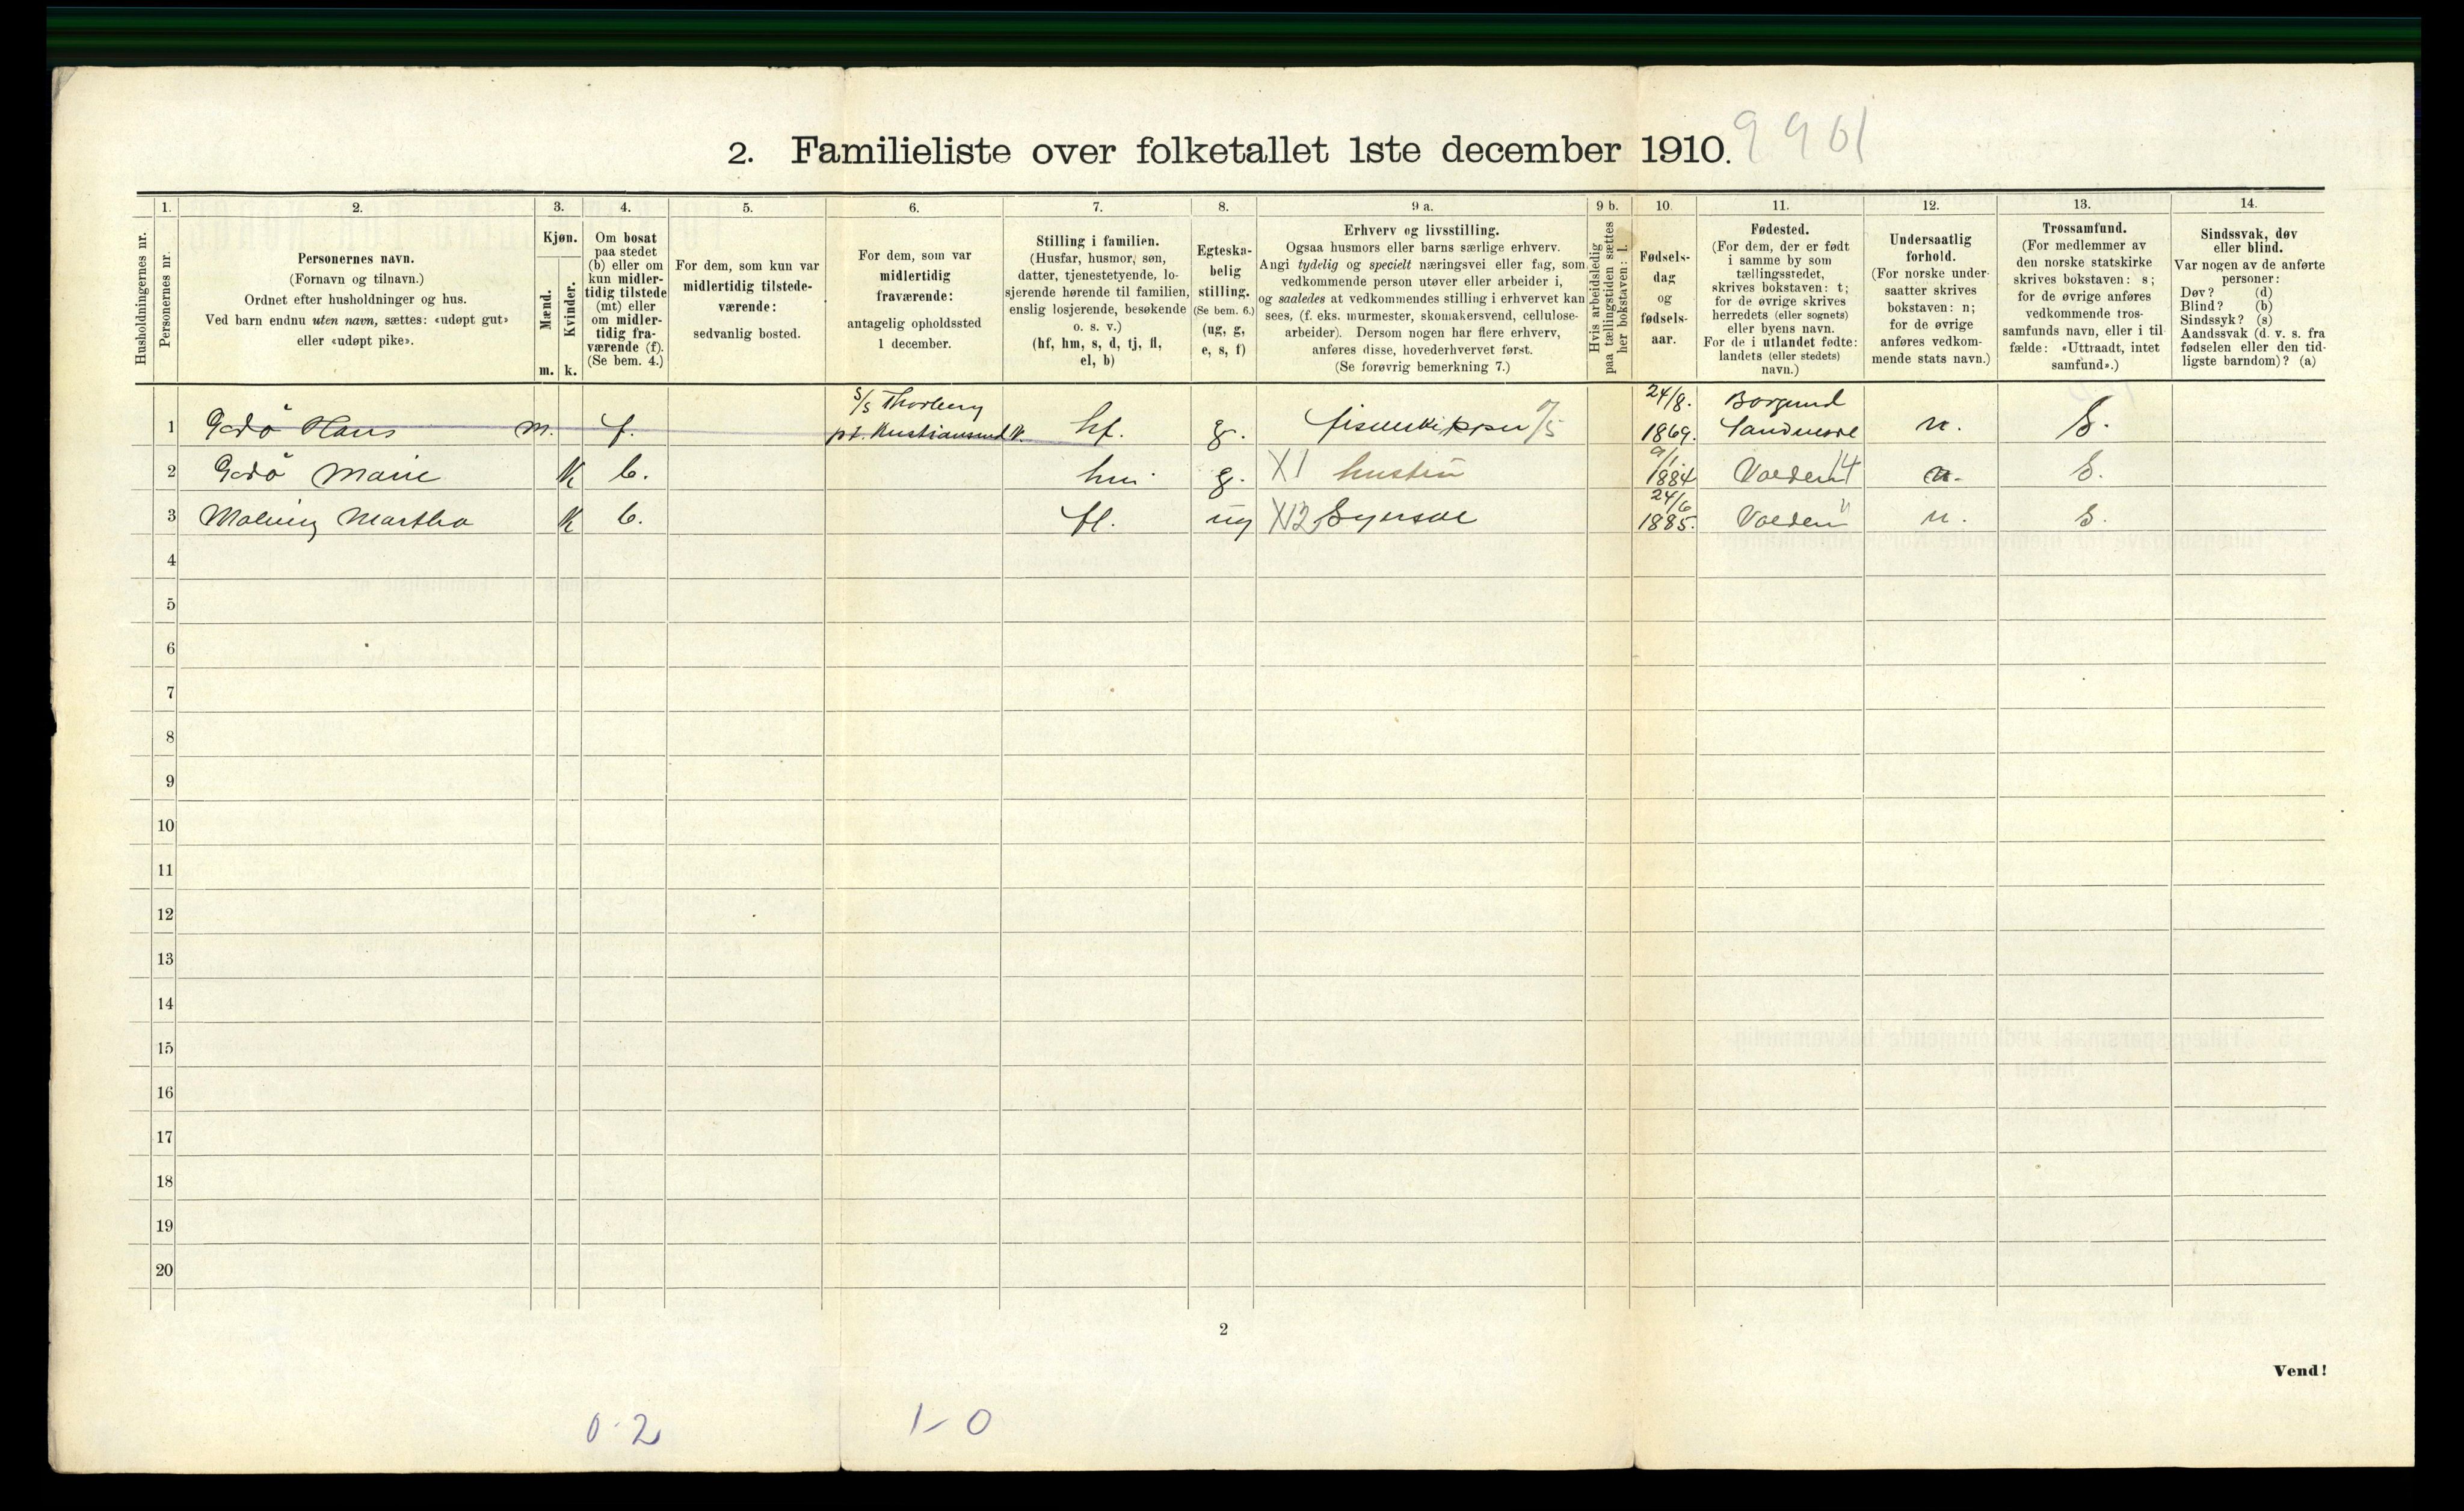 2. Familieliste over folketallet 1ste december 1910.
9961
Husholdningernes nr.
1.
Personernes nr.
2.
Personernes navn.
(Fornavn og tilnavn.)
Ordnet efter husholdninger og hus.
Ved barn endnu uten navn, sættes: «udøpt gut»
eller «udøpt pike».
3.
Kjøn.
Mænd.
Kvinder.
m. k.
4.
Om bosat
paa stedet
(b) eller om
kun midler-
tidig tilstede
(mt) eller
om midler-
tidig fra-
værende (f).
(Se bem. 4.)
5.
For dem, som kun var
midlertidig tilstede-
værende:
sedvanlig bosted.
6.
For dem, som var
midlertidig
fraværende:
antagelig opholdssted
1 december.
7.
Stilling i familien.
(Husfar, husmor, søn,
datter, tjenestetyende, lo-
sjerende hørende til familien,
enslig losjerende, besøkende
o. s. v.)
(hf, hm, s, d, tj, fl,
el, b)
8.
Egteska-
belig
stilling.
(Se bem. 6.)
(ug, g,
e, s, f)
9 a.
Erhverv og livsstilling.
Ogsaa husmors eller barns særlige erhverv.
Angi tydelig og specielt næringsvei eller fag, som
vedkommende person utøver eller arbeider i,
og saaledes at vedkommendes stilling i erhvervet kan
sees, (f. eks. murmester, skomakersvend, cellulose-
arbeider). Dersom nogen har flere erhverv,
anføres disse, hovederhvervet først.
(Se forøvrig bemerkning 7.)
9 b.
Hvis arbeidsledig
paa tællingstiden sættes
her bokstaven: l.
10.
Fødsels-
dag
og
fødsels-
aar.
11.
Fødested.
(For dem, der er født
i samme by som
tællingsstedet,
skrives bokstaven: t;
for de øvrige skrives
herredets (eller sognets)
eller byens navn.
For de i utlandet fødte:
landets (eller stedets)
navn.)
12.
Undersaatlig
forhold.
(For norske under-
saatter skrives
bokstaven: n;
for de øvrige
anføres vedkom-
mende stats navn.)
13.
Trossamfund.
(For medlemmer av
den norske statskirke
skrives bokstaven: s;
for de øvrige anføres
vedkommende tros-
samfunds navn, eller i til-
fælde: «Uttraadt, intet
samfund».)
14.
Sindssvak, døv
eller blind.
Var nogen av de anførte
personer:
Døv? (d)
Blind? (b)
Sindssyk? (s)
Aandssvak (d. v. s. fra
fødselen eller den tid-
ligste barndom)? (a)
1 Godö Hans m. f. S/S Thorberg pt. Kristiansund N. hf. g. fiskeskipper 24/8. 1869. Borgund Søndmøre n. S.
2 Godö Marie K b. hm g. X1 hustru 9/1 1884 Volden 14 n. S.
3 Malvig Martha K b. fl. ug X13 Syerske 24/6 1885. Volden " n. S.
4
5
6
7
8
9
10
11
12
13
14
15
16
17
18
19
20
2
Vend!
0-2 1-0